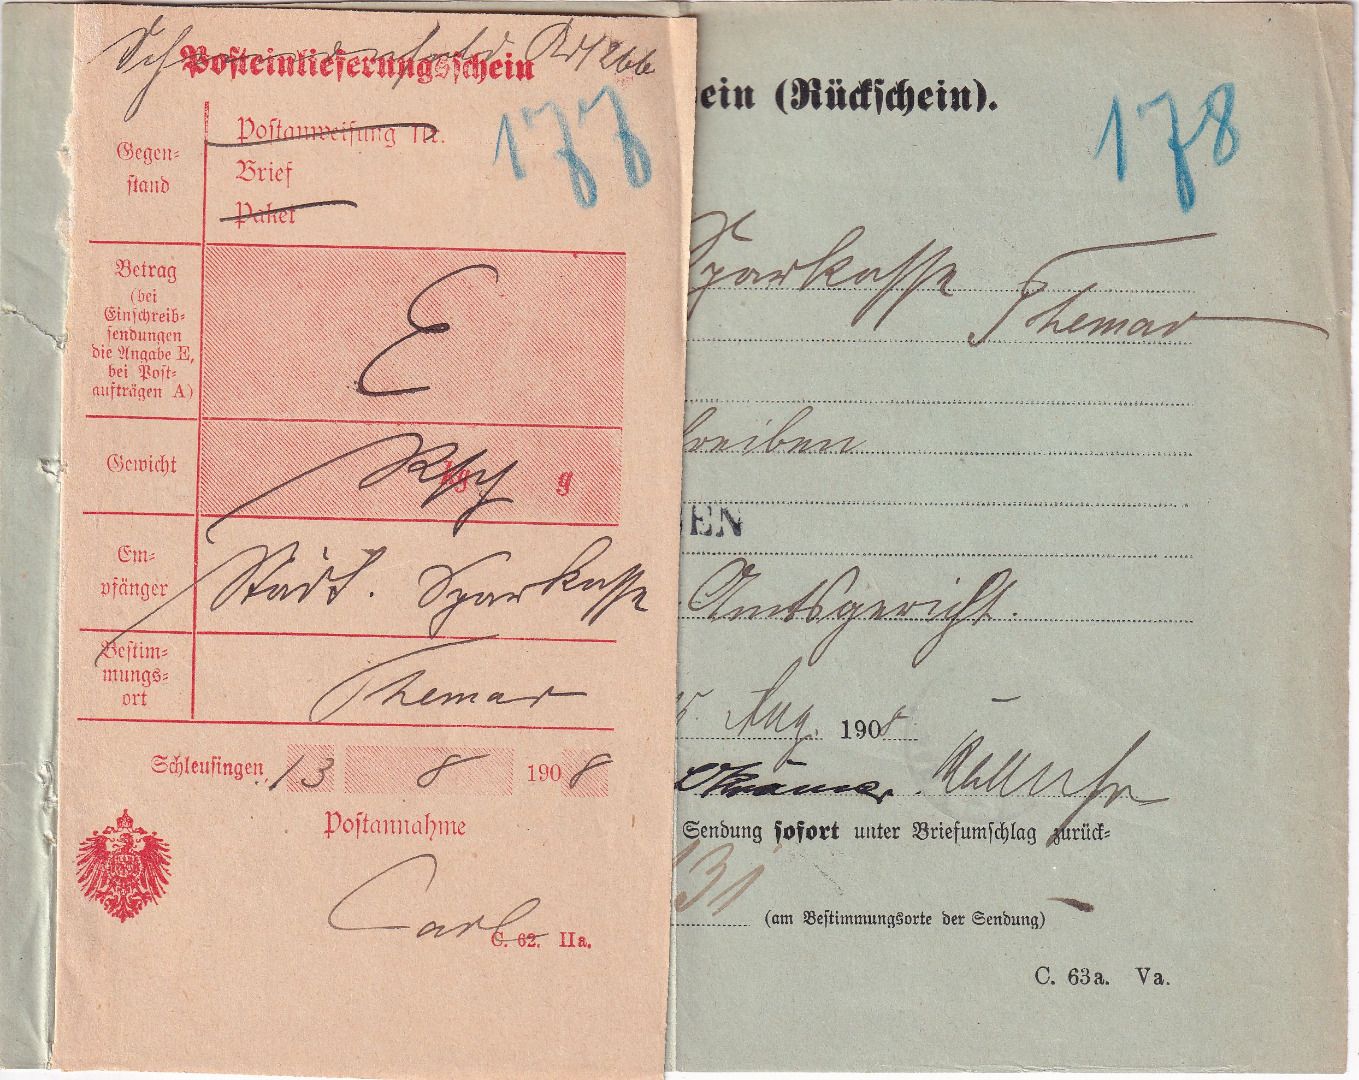 Posteinlieferungsschein
177
Gegen-
stand
Postanweisung Nr.
Brief
Paket
Betrag
(bei
Einschreib-
sendungen
die Angabe E,
bei Post-
aufträgen A)
E
Gewicht
kg g
Em-
pfänger
Städt. Sparkasse
Bestim-
mungs-
ort
Themar
Schleusingen 13 8 1908
Postannahme
Carl
C. 62. IIa.
ein (Rückschein).
178
Sparkasse Themar
reiben
EN
Amtsgericht.
Aug. 1908
Sendung sofort unter Briefumschlag zurück-
131
(am Bestimmungsorte der Sendung)
C. 63a. Va.